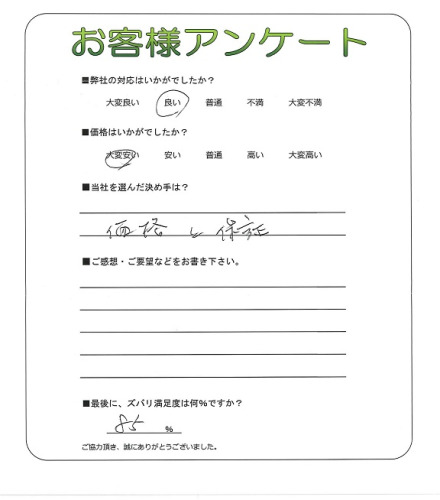 お客様アンケート
■弊社の対応はいかがでしたか?
大変良い 良い 普通 不満 大変不満
■価格はいかがでしたか?
大変安い 安い 普通 高い 大変高い
■当社を選んだ決め手は?
価格と保証
■ご感想・ご要望などをお書き下さい。
■最後に、ズバリ満足度は何%ですか?
85 %
ご協力頂き、誠にありがとうございました。